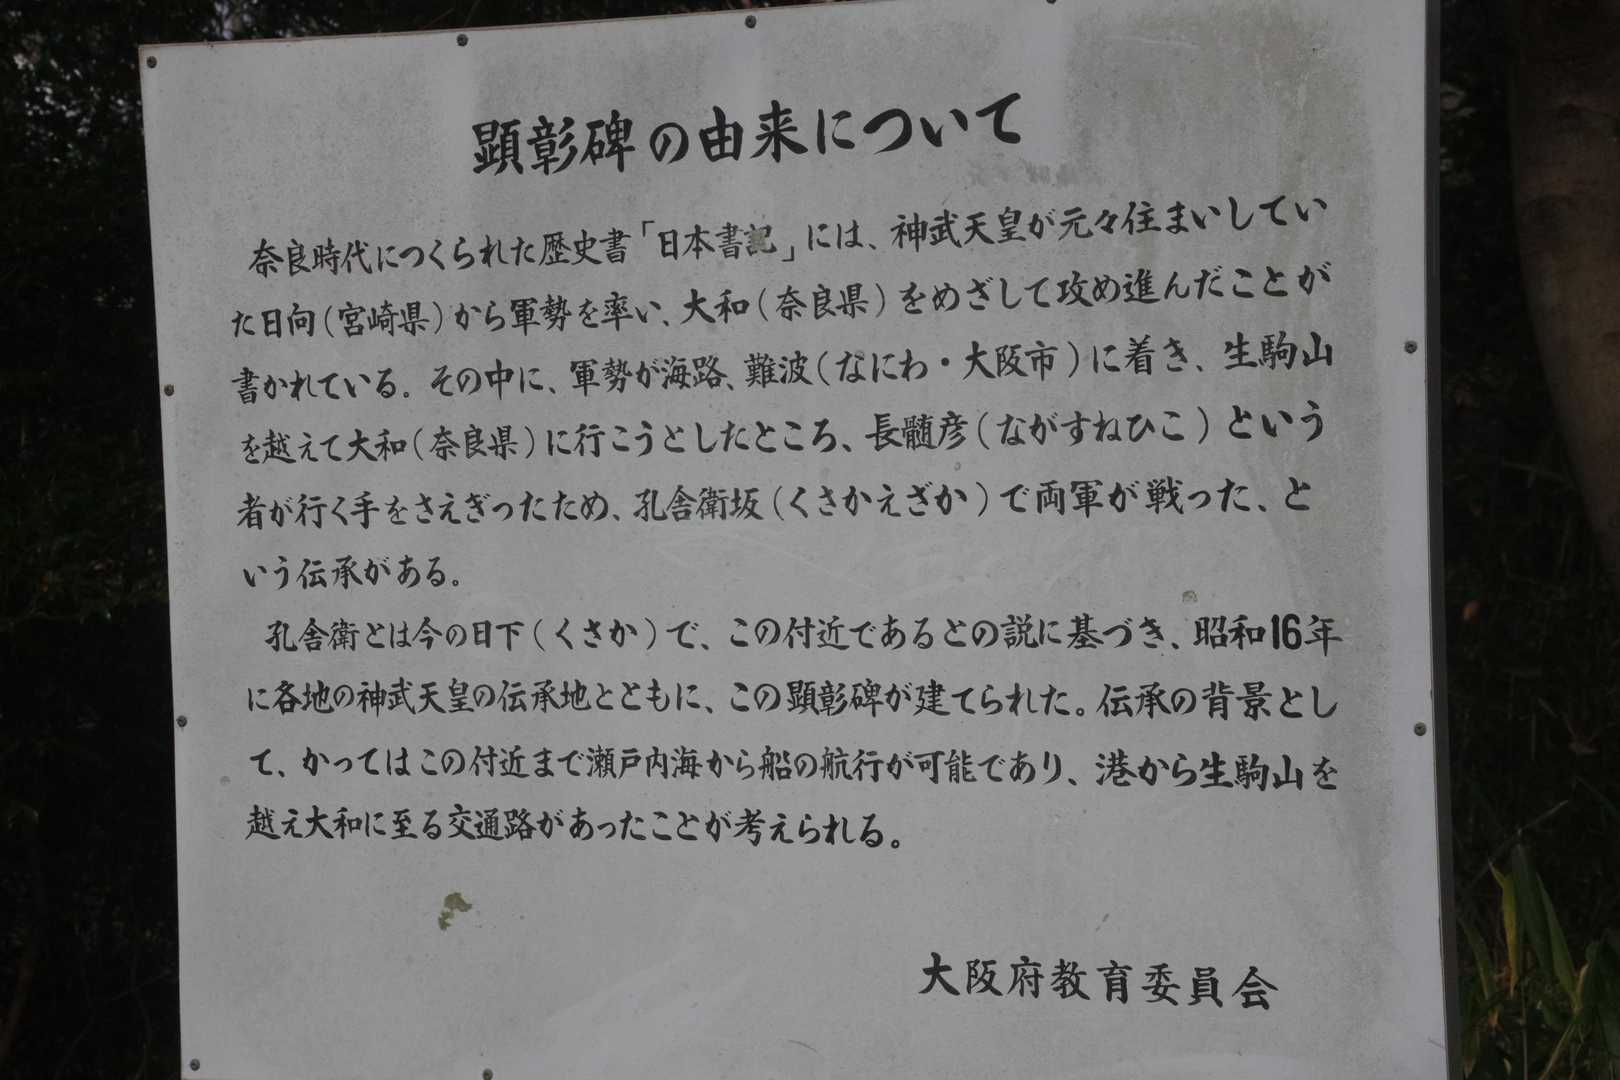 顕彰碑の由来について
奈良時代につくられた歴史書「日本書記」には、神武天皇が元々住まいしてい
た日向(宮崎県)から軍勢を率い、大和(奈良県)をめざして攻め進んだことが
書かれている。その中に、軍勢が海路、難波(なにわ・大阪市)に着き、生駒山
を越えて大和(奈良県)に行こうとしたところ、長髄彦(ながすねひこ)という
者が行く手をさえぎったため、孔舎衛坂(くさかえざか)で両軍が戦った、と
いう伝承がある。
孔舎衛とは今の日下(くさか)で、この付近であるとの説に基づき、昭和16年
に各地の神武天皇の伝承地とともに、この顕彰碑が建てられた。伝承の背景とし
て、かってはこの付近まで瀬戸内海から船の航行が可能であり、港から生駒山を
越え大和に至る交通路があったことが考えられる。
大阪府教育委員会